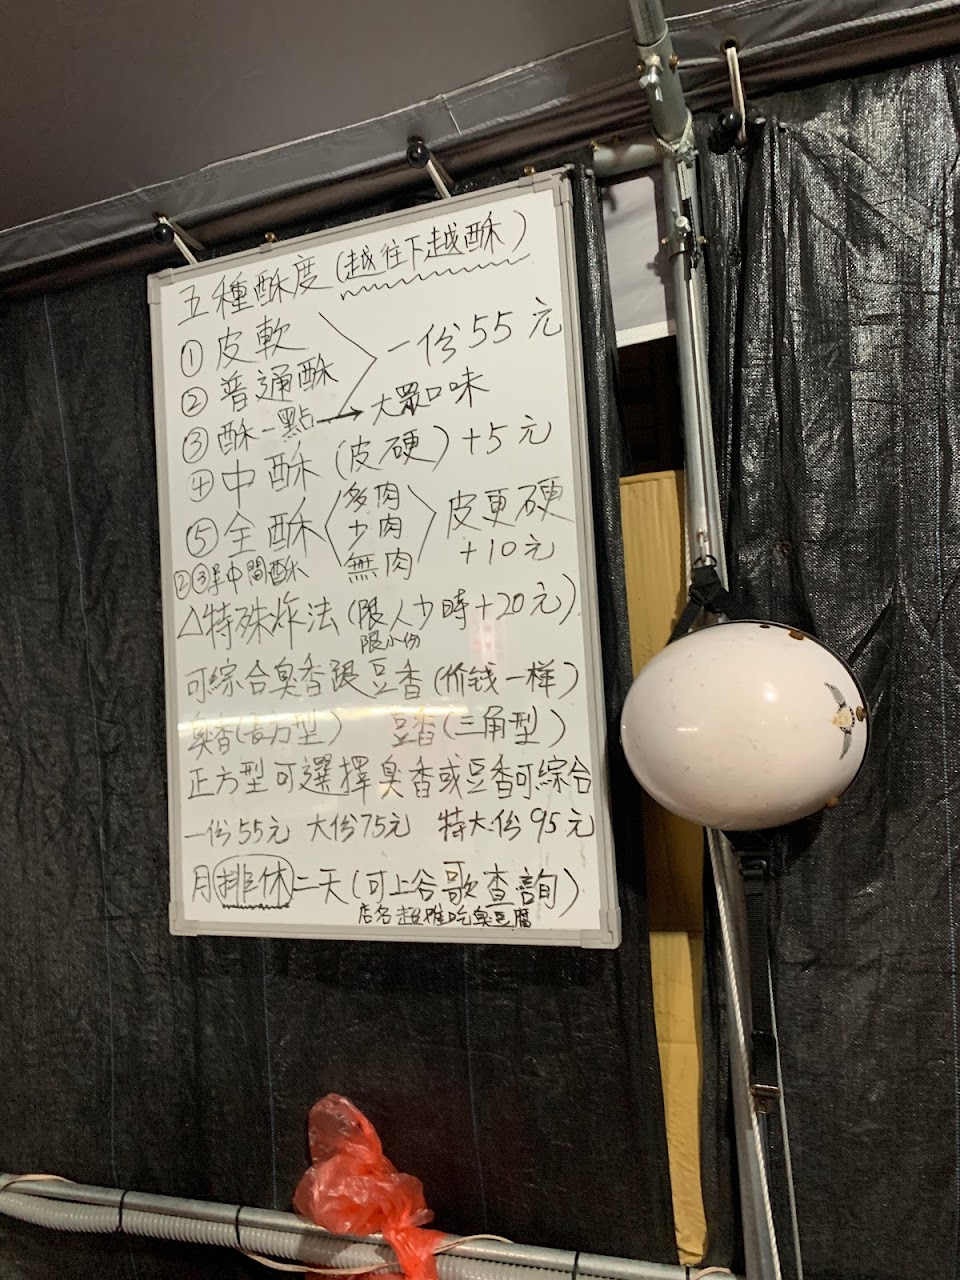 五種酥度(越往下越酥)
①皮軟
②普通酥 一份55元
③酥一點→大眾口味
④中酥(皮硬)+5元
⑤全酥〈多肉 少肉 無肉〉皮更硬 +10元
②③中間酥
△特殊炸法(限人少時+20元)
限小份
可綜合臭香跟豆香(价钱一样)
臭香(長方型) 豆香(三角型)
正方型可選擇臭香或豆香可綜合
一份55元 大份75元 特大份95元
月排休二天(可上谷歌查詢)
店名超推吃臭豆腐